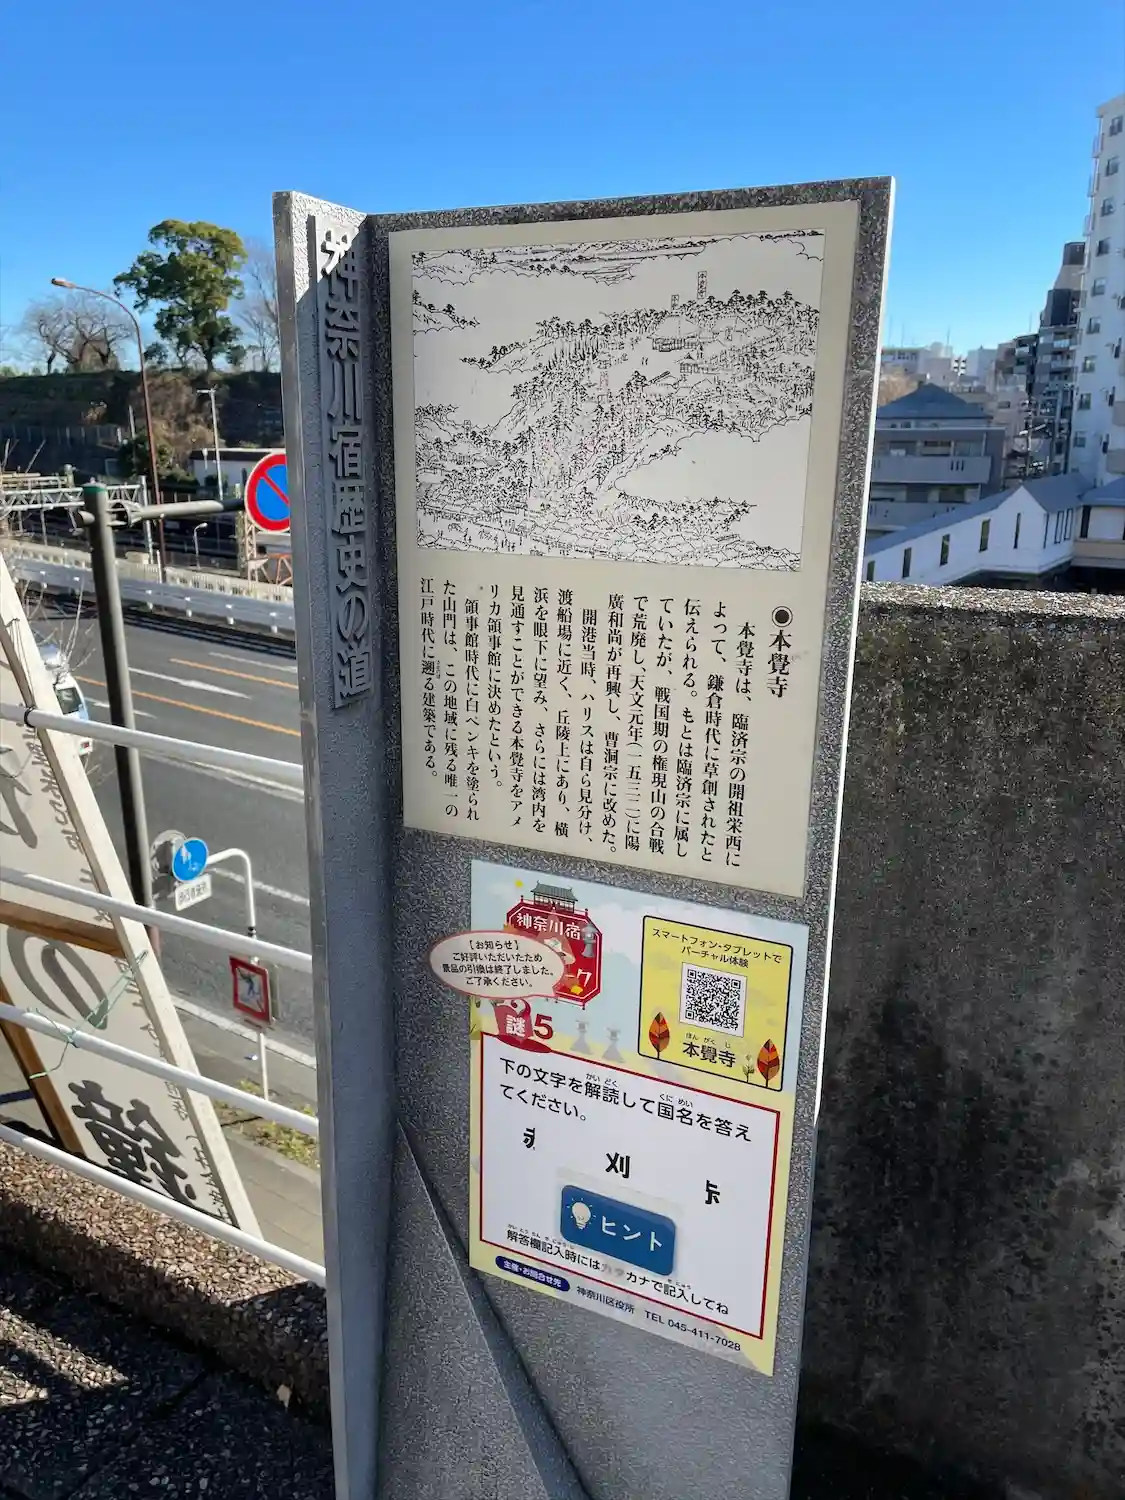 神奈川宿歴史の道
本覺寺
本覺寺は、臨済宗の開祖栄西に
よって、鎌倉時代に草創されたと
伝えられる。もとは臨済宗に属し
ていたが、戦国期の権現山の合戦
で荒廃し、天文元年(一五三二)に陽
廣和尚が再興し、曹洞宗に改めた。
開港当時、ハリスは自ら見分け、
渡船場に近く、丘陵上にあり、横
浜を眼下に望み、さらには湾内を
見通すことができる本覺寺をアメ
リカ領事館に決めたという。
領事館時代に白ペンキを塗られ
た山門は、この地域に残る唯一の
江戸時代に遡る建築である。
神奈川宿
ーク
【お知らせ】
ご好評いただいたため
景品の引換は終了しました。
ご了承ください。
謎5
スマートフォン・タブレットで
バーチャル体験
ほんがくじ
本覺寺
かいどく
くにめい
下の文字を解読して国名を答え
てください。
刈
ヒント
解答欄記入時にはカタカナで記入してね
主催・お問合せ先
神奈川区役所 TEL 045-411-7028
鐘